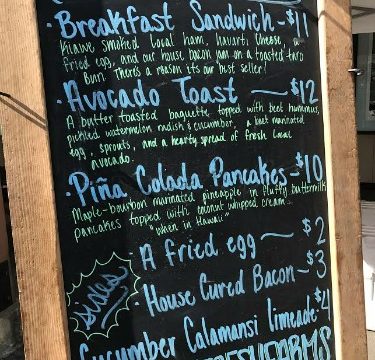 · Breakfast Sandwich - $11
Kiawe smoked local ham, havarti cheese, a
fried egg, and our house bacon jam on a toasted taro
bun. There's a reason its our best seller!
· Avocado Toast — $12
A butter toasted baguette topped with beet hummus,
pickled watermelon radish & cucumber, a beet marinated
egg, sprouts, and a hearty spread of fresh local
avocado.
· Piña Colada Pancakes - $10
Maple-bourbon marinated pineapple in fluffy buttermilk
pancakes topped with coconut whipped cream.
"when in Hawaii"
sides
· A fried egg — $2
· House Cured Bacon - $3
Cucumber Calamansi limeade - $4